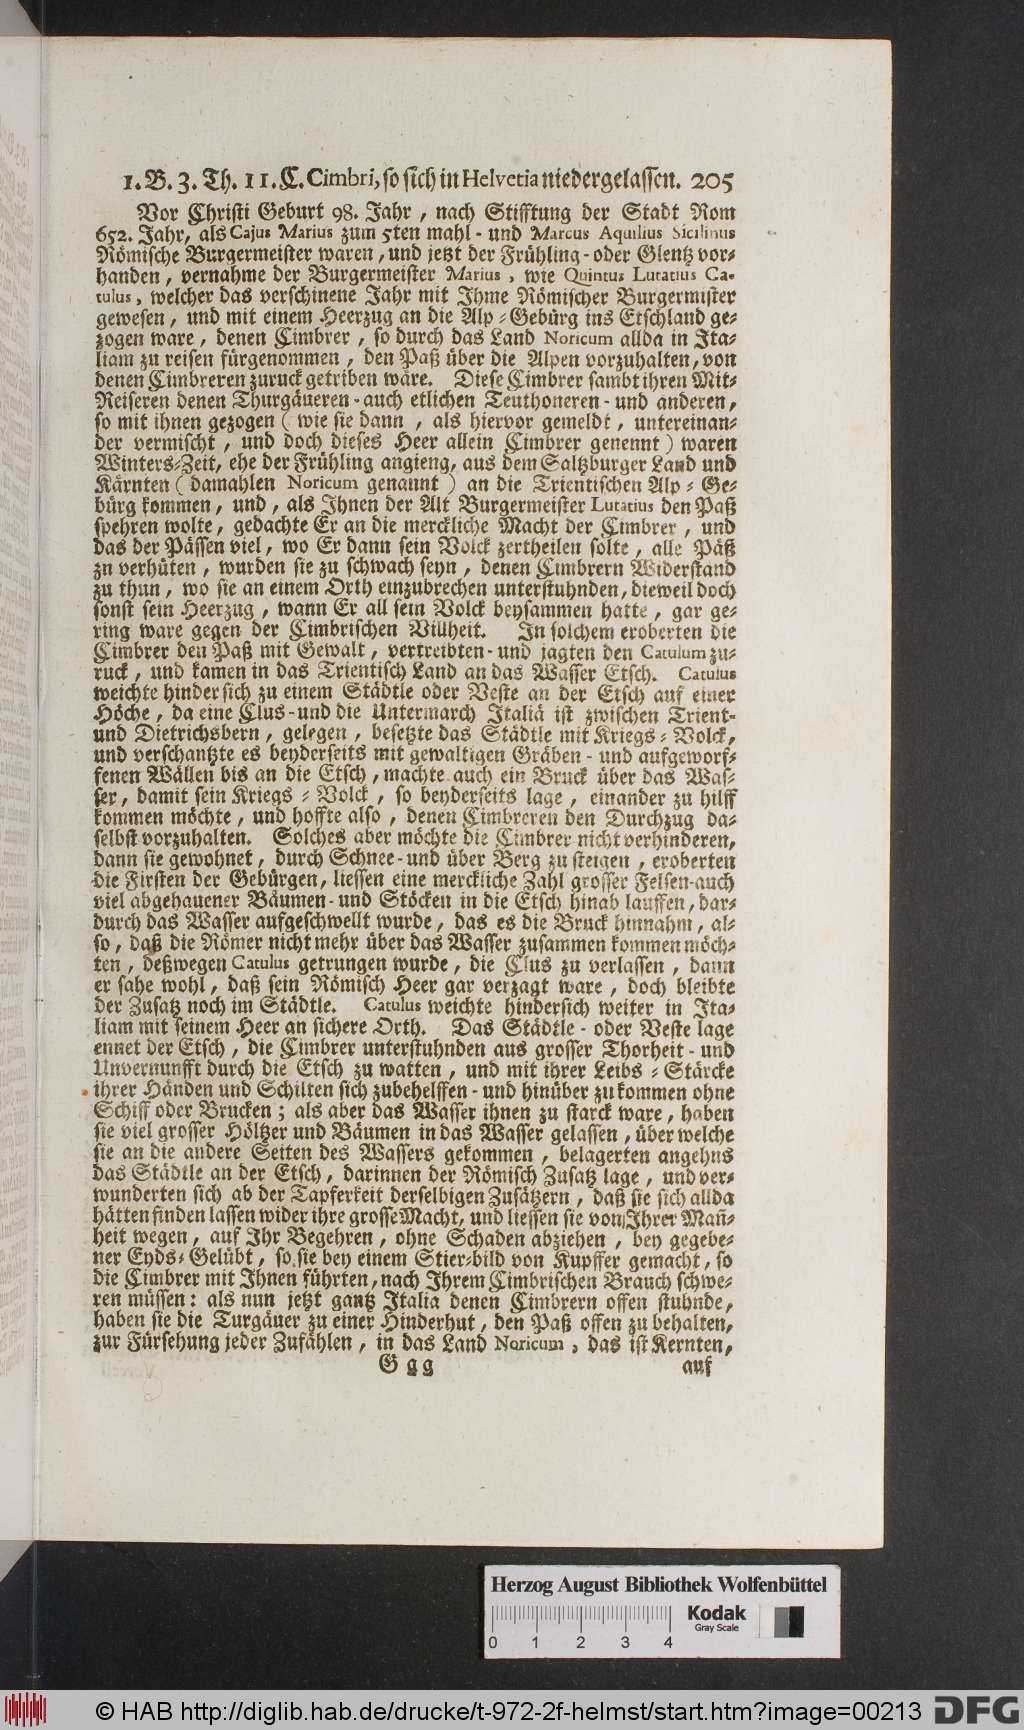 1. B. 3. Th. 11. C. Cimbri, so sich in Helvetia niedergelassen. 205
Vor Christi Geburt 98. Jahr, nach Stifftung der Stadt Rom
652. Jahr, als Cajus Marius zum 5ten mahl- und Marcus Aquilius Sicilinus
Römische Burgermeister waren, und jetzt der Frühling- oder Glentz vor-
handen, vernahme der Burgermeister Marius, wie Quintus Lutatius Ca-
tulus, welcher das verschinene Jahr mit Ihme Römischer Burgermister
gewesen, und mit einem Heerzug an die Alp-Gebürg ins Etschland ge-
zogen ware, denen Cimbrer, so durch das Land Noricum allda in Ita-
liam zu reisen fürgenommen, den Paß über die Alpen vorzuhalten, von
denen Cimbreren zuruck getriben wäre. Diese Cimbrer sambt ihren Mit-
Reiseren denen Thurgäueren- auch etlichen Teuthoneren- und anderen,
so mit ihnen gezogen (wie sie dann, als hiervor gemeldt, untereinan-
der vermischt, und doch dieses Heer allein Cimbrer genennt) waren
Winters-Zeit, ehe der Frühling angieng, aus dem Saltzburger Land und
Kärnten (damahlen Noricum genannt) an die Trientischen Alp-Ge-
bürg kommen, und, als Ihnen der Alt Burgermeister Lutatius den Paß
spehren wolte, gedachte Er an die merckliche Macht der Cimbrer, und
das der Pässen viel, wo Er dann sein Volck zertheilen solte, alle Päß
zu verhüten, wurden sie zu schwach seyn, denen Cimbrern Widerstand
zu thun, wo sie an einem Orth einzubrechen unterstuhnden, dieweil doch
sonst sein Heerzug, wann Er all sein Volck beysammen hatte, gar ge-
ring ware gegen der Cimbrischen Villheit. In solchem eroberten die
Cimbrer den Paß mit Gewalt, vertreibten- und jagten den Catulum zu-
ruck, und kamen in das Trientisch Land an das Wasser Etsch. Catulus
weichte hindersich zu einem Städtle oder Veste an der Etsch auf einer
Höche, da eine Clus- und die Untermarch Italiä ist zwischen Trient-
und Dietrichsbern, gelegen, besetzte das Städtle mit Kriegs-Volck,
und verschantzte es beyderseits mit gewaltigen Gräben- und aufgeworf-
fenen Wällen bis an die Etsch, machte auch ein Bruck über das Was-
ser, damit sein Kriegs-Volck, so beyderseits lage, einander zu hilff
kommen möchte, und hoffte also, denen Cimbreren den Durchzug da-
selbst vorzuhalten. Solches aber möchte die Cimbrer nicht verhinderen,
dann sie gewohnet, durch Schnee- und über Berg zu steigen, eroberten
die Firsten der Gebürgen, liessen eine merckliche Zahl grosser Felsen- auch
viel abgehauener Bäumen- und Stöcken in die Etsch hinab lauffen, dar-
durch das Wasser aufgeschwellt wurde, das es die Bruck hinnahm, al-
so, daß die Römer nicht mehr über das Wasser zusammen kommen möch-
ten, deßwegen Catulus getrungen wurde, die Clus zu verlassen, dann
er sahe wohl, daß sein Römisch Heer gar verzagt ware, doch bleibte
der Zusatz noch im Städtle. Catulus weichte hindersich weiter in Ita-
liam mit seinem Heer an sichere Orth. Das Städtle- oder Veste lage
ennet der Etsch, die Cimbrer unterstuhnden aus grosser Thorheit- und
Unvernunfft durch die Etsch zu watten, und mit ihrer Leibs-Stärcke
ihrer Händen und Schilten sich zubehelffen- und hinüber zu kommen ohne
Schiff oder Brucken; als aber das Wasser ihnen zu starck ware, haben
sie viel grosser Höltzer und Bäumen in das Wasser gelassen, über welche
sie an die andere Seiten des Wassers gekommen, belagerten angehns
das Städtle an der Etsch, darinnen der Römisch Zusatz lage, und ver-
wunderten sich ab der Tapferkeit derselbigen Zusätzern, daß sie sich allda
hätten finden lassen wider ihre grosse Macht, und liessen sie von Ihrer Man̄-
heit wegen, auf Ihr Begehren, ohne Schaden abziehen, bey gegebe-
ner Eyds-Gelübt, so sie bey einem Stier-bild von Kupffer gemacht, so
die Cimbrer mit Ihnen führten, nach Ihrem Cimbrischen Brauch schwe-
ren müssen: als nun jetzt gantz Italia denen Cimbrern offen stuhnde,
haben sie die Turgäuer zu einer Hinderhut, den Paß offen zu behalten,
zur Fürsehung jeder Zufählen, in das Land Noricum, das ist Kernten,
G g g auf
Herzog August Bibliothek Wolfenbüttel
Kodak
Gray Scale
0 1 2 3 4
© HAB http://diglib.hab.de/drucke/t-972-2f-helmst/start.htm?image=00213 DFG